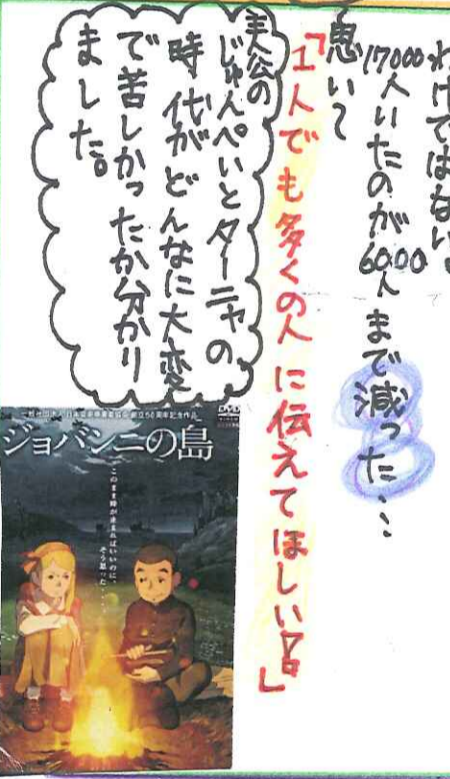 わけではない。
17000人いたのが6000人まで減った・・・
思い↓
「1人でも多くの人に伝えてほしい!!」
主人公の
じゅんぺいとターニャの
時代がどんなに大変
で苦しかったか分かり
ました。
DVD
ジョバンニの島
このまま時が止まればいいのに、
そう思った・・・・